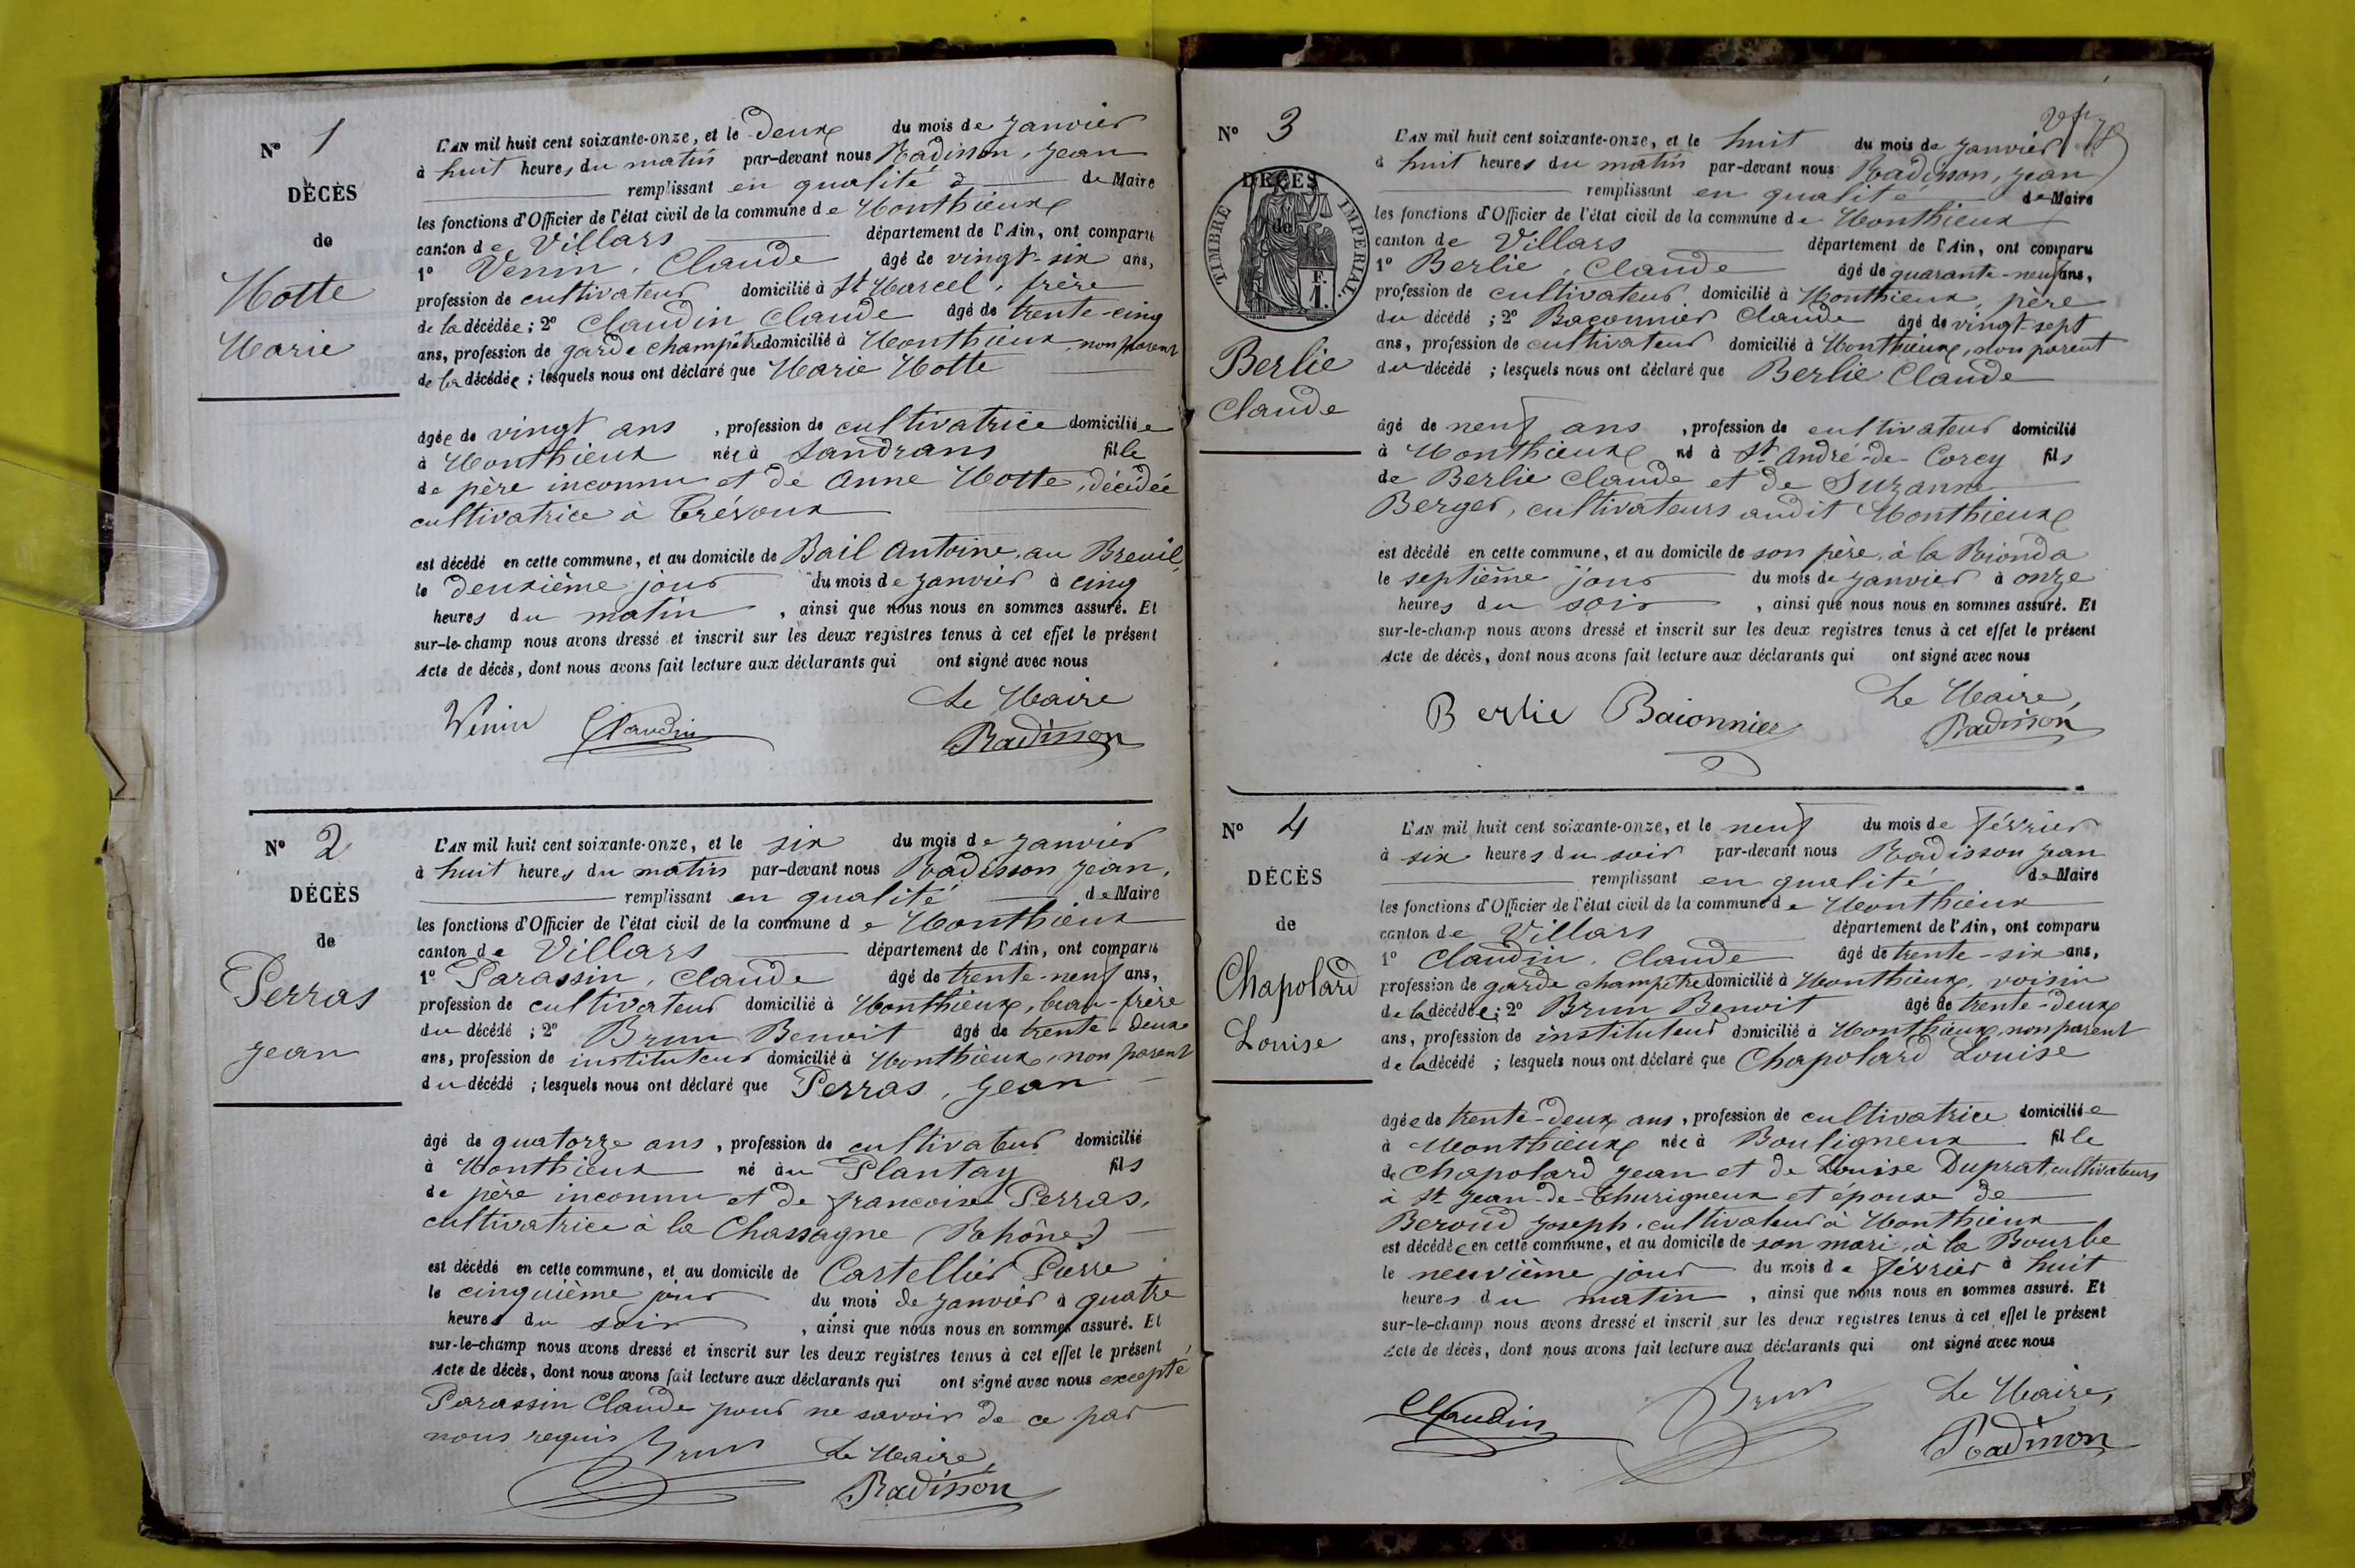 N° 1
DÉCÈS
de
Motte
Marie
L'AN mil huit cent soixante-onze, et le deux du mois de Janvier
à huit heures du matin par-devant nous Radisson, Jean
remplissant en qualité d de Maire
les fonctions d'Officier de l'état civil de la commune de Monthieux
canton de Villars département de l'Ain, ont comparu
1° Venin, Claude âgé de vingt-six ans,
profession de cultivateur domicilié à St Marcel, frère
de la décédée ; 2° Claudin Claude âgé de trente-cinq
ans, profession de garde champêtre domicilié à Monthieux non parent
de la décédée ; lesquels nous ont déclaré que Marie Motte
âgée de vingt ans , profession de cultivatrice domiciliée
à Monthieux née à Sandrans fille
de père inconnu et de Anne Motte, décédée
cultivatrice à Trévoux
est décédé en cette commune, et au domicile de Bail Antoine, au Breuil,
le deuxième jour du mois de Janvier à cinq
heures du matin , ainsi que nous nous en sommes assuré. Et
sur-le-champ nous avons dressé et inscrit sur les deux registres tenus à cet effet le présent
Acte de décès, dont nous avons fait lecture aux déclarants qui ont signé avec nous
Le Maire
Venin Claudin Radisson
N° 2
DÉCÈS
de
Perras
Jean
L'AN mil huit cent soixante-onze, et le six du mois de Janvier
à huit heures du matin par-devant nous Radisson Jean,
remplissant en qualité de Maire
les fonctions d'Officier de l'état civil de la commune de Monthieux
canton de Villars département de l'Ain, ont comparu
1° Parassin, Claude âgé de trente-neuf ans,
profession de cultivateur domicilié à Monthieux, beau-frère
du décédé ; 2° Brun Benoit âgé de trente-deux
ans, profession de instituteur domicilié à Monthieux, non parent
du décédé ; lesquels nous ont déclaré que Perras, Jean
âgé de quatorze ans , profession de cultivateur domicilié
à Monthieux né au Plantay fils
de père inconnu et de françoise Perras,
cultivatrice à la Chassagne (Rhône)
est décédé en cette commune, et au domicile de Castellier Pierre
le cinquième jour du mois de Janvier à quatre
heures du soir , ainsi que nous nous en sommes assuré. Et
sur-le-champ nous avons dressé et inscrit sur les deux registres tenus à cet effet le présent
Acte de décès, dont nous avons fait lecture aux déclarants qui ont signé avec nous excepté
Parassin Claude pour ne savoir de ce par
nous requis Brun Le Maire,
Radisson
N° 3
DÉCÈS
de
TIMBRE IMPÉRIAL
F.
1.
Berlie
Claude
L'AN mil huit cent soixante-onze, et le huit du mois de Janvier
à huit heures du matin par-devant nous Radisson, Jean
remplissant en qualité de Maire
les fonctions d'Officier de l'état civil de la commune de Monthieux
canton de Villars département de l'Ain, ont comparu
1° Berlie, Claude âgé de quarante-neuf ans,
profession de cultivateur domicilié à Monthieux, père
du décédé ; 2° Baconnier Claude âgé de vingt-sept
ans, profession de cultivateur domicilié à Monthieux, non parent
du décédé ; lesquels nous ont déclaré que Berlie Claude
âgé de neuf ans , profession de cultivateur domicilié
à Monthieux né à St André-de-Corcy fils
de Berlie Claude et de Suzanne
Berger, cultivateurs audit Monthieux
est décédé en cette commune, et au domicile de son père, à la Rionda
le septième jour du mois de Janvier à onze
heures du soir , ainsi que nous nous en sommes assuré. Et
sur-le-champ nous avons dressé et inscrit sur les deux registres tenus à cet effet le présent
Acte de décès, dont nous avons fait lecture aux déclarants qui ont signé avec nous
Le Maire,
Berlie Baionnier Radisson
N° 4
DÉCÈS
de
Chapolard
Louise
L'AN mil huit cent soixante-onze, et le neuf du mois de février
à six heures du soir par-devant nous Radisson Jean
remplissant en qualité de Maire
les fonctions d'Officier de l'état civil de la commune de Monthieux
canton de Villars département de l'Ain, ont comparu
1° Claudin, Claude âgé de trente-six ans,
profession de garde champêtre domicilié à Monthieux, voisin
de la décédée ; 2° Brun Benoit âgé de trente-deux
ans, profession de instituteur domicilié à Monthieux, non parent
de la décédé ; lesquels nous ont déclaré que Chapolard Louise
âgée de trente-deux ans , profession de cultivatrice domiciliée
à Monthieux née à Bouligneux fille
de Chapolard Jean et de Louise Duprat, cultivateurs
à St Jean-de-Thurigneux et épouse de
Beroud Joseph, cultivateur à Monthieux
est décédée en cette commune, et au domicile de son mari, à la Bourbe
le neuvième jour du mois de février à huit
heures du matin , ainsi que nous nous en sommes assuré. Et
sur-le-champ nous avons dressé et inscrit sur les deux registres tenus à cet effet le présent
Acte de décès, dont nous avons fait lecture aux déclarants qui ont signé avec nous
Le Maire,
Claudin Brun Radisson